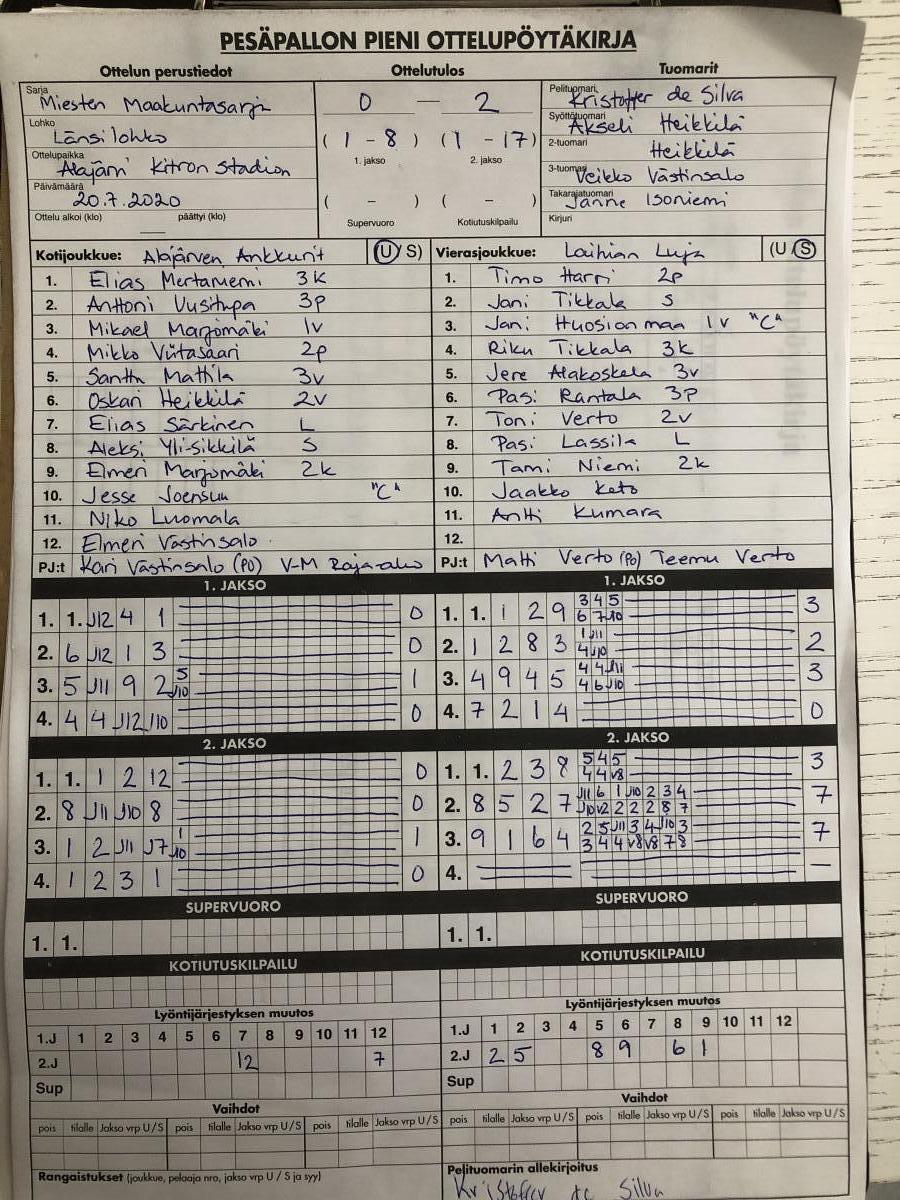 PESÄPALLON PIENI OTTELUPÖYTÄKIRJA
Ottelun perustiedot Ottelutulos Tuomarit
Sarja Miesten Maakuntasarja
Lohko Länsilohko
Ottelupaikka Alajärvi Kitron Stadion
Päivämäärä 20.7.2020
Ottelu alkoi (klo) päättyi (klo)
0 — 2
( 1 - 8 ) ( 1 - 17 )
1. jakso 2. jakso
( - ) ( - )
Supervuoro Kotiutuskilpailu
Pelituomari Kristoffer de Silva
Syöttötuomari Akseli Heikkilä
2-tuomari Heikkilä
3-tuomari Veikko Västinsalo
Takarajatuomari Janne Isoniemi
Kirjuri
Kotijoukkue: Alajärven Ankkurit (U/S)
1. Elias Mertaniemi 3k
2. Anttoni Uusitupa 3p
3. Mikael Marjomäki 1v
4. Mikko Viitasaari 2p
5. Santtu Mattila 3v
6. Oskari Heikkilä 2v
7. Elias Särkinen L
8. Aleksi Yli-Sikkilä S
9. Elmeri Marjomäki 2k
10. Jesse Joensuu "C"
11. Niko Luomala
12. Elmeri Västinsalo
PJ:t Kari Västinsalo (PO) V-M Raja-aho
Vierasjoukkue: Laihian Luja (U/S)
1. Timo Harri 2p
2. Jani Tikkala S
3. Jani Huosionmaa 1v "C"
4. Riku Tikkala 3k
5. Jere Alakoskela 3v
6. Pasi Rantala 3p
7. Toni Verto 2v
8. Pasi Lassila L
9. Tami Niemi 2k
10. Jaakko Keto
11. Antti Kumara
12.
PJ:t Matti Verto (Po) Teemu Verto
1. JAKSO
1. 1. J12 4 1 0
2. 6 J12 1 3 0
3. 5 J11 9 2 J10 5 1
4. 4 4 J12 J10 0
1. JAKSO
1. 1. 1 2 9 3 4 5 3
6 7 J10
2. 1 2 8 3 1 J11 2
4 J10
3. 4 9 4 5 4 4 J11 3
4 6 J10
4. 7 2 1 4 0
2. JAKSO
1. 1. 1 2 12 0
2. 8 J11 J10 8 0
3. 1 2 J11 J7 J10 1 1
4. 1 2 3 1 0
2. JAKSO
1. 1. 2 3 8 5 4 5 3
4 4 v8
2. 8 5 2 7 J11 6 1 J10 2 3 4 7
J10 v2 2 2 2 8 7
3. 9 1 6 4 2 5 J11 3 4 J10 3 7
3 4 4 v8 v8 7 8
4. —
SUPERVUORO
1. 1.
SUPERVUORO
1. 1.
KOTIUTUSKILPAILU
KOTIUTUSKILPAILU
Lyöntijärjestyksen muutos
1.J 1 2 3 4 5 6 7 8 9 10 11 12
2.J 12 7
Sup
Lyöntijärjestyksen muutos
1.J 1 2 3 4 5 6 7 8 9 10 11 12
2.J 2 5 8 9 6 1
Sup
Vaihdot
pois tilalle Jakso vrp U/S pois tilalle Jakso vrp U/S pois tilalle Jakso vrp U/S
Vaihdot
pois tilalle Jakso vrp U/S pois tilalle Jakso vrp U/S pois tilalle Jakso vrp U/S
Rangaistukset (joukkue, pelaaja nro, jakso vrp U / S ja syy)
Pelituomarin allekirjoitus
Kristoffer de Silva